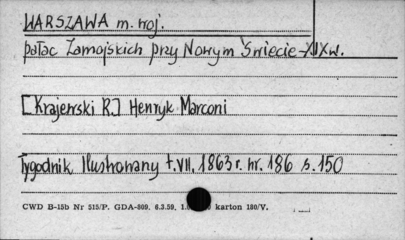 WARSZAWA m. woj.
pałac Zamojskich przy Nowym Świecie - XIX w.
[Krajewski R.] Henryk Marconi
Tygodnik Ilustrowany t. VII, 1863 r. nr. 186 s. 150
CWD B-15b Nr 515/P. GDA-809. 6.3.59. karton 180/V.